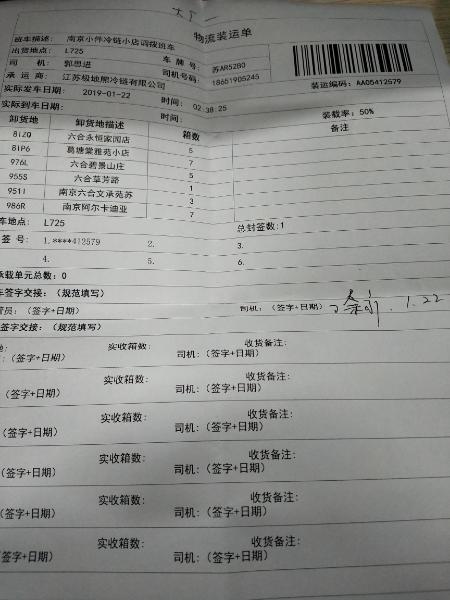 物流装运单
班车描述: 南京小件冷链小店调拨班车
出货地点: L725 车牌号: 苏AR52B0
司机: 郭思进 司机号码: 18651905245
承运商: 江苏极地熊冷链有限公司 装运编码: AA05412579
实际发车日期: 2019-01-22 时间: 02:38:25
实际到车日期: 时间: 装载率: 50%
卸货地 卸货地描述 箱数 备注
8IZQ 六合永恒家园店 5
8IP6 葛塘棠雅苑小店 5
976L 六合碧景山庄 7
955S 六合草芳路 5
951I 南京六合文承苑苏 1
3
986R 南京阿尔卡迪亚 7
车地点: L725 总封签数:1
签号: 1.****412579 2. 3.
4. 5. 6.
承载单元总数: 0
车签字交接: (规范填写)
管员: (签字+日期) 司机: (签字+日期) 1.22
签字交接: (规范填写)
实收箱数: 收货备注:
: (签字+日期) 司机: (签字+日期)
实收箱数: 收货备注:
(签字+日期) 司机: (签字+日期)
实收箱数: 收货备注:
(签字+日期) 司机: (签字+日期)
实收箱数: 收货备注:
(签字+日期) 司机: (签字+日期)
实收箱数: 收货备注:
(签字+日期) 司机: (签字+日期)
实收箱数: 收货备注:
(签字+日期) 司机: (签字+日期)